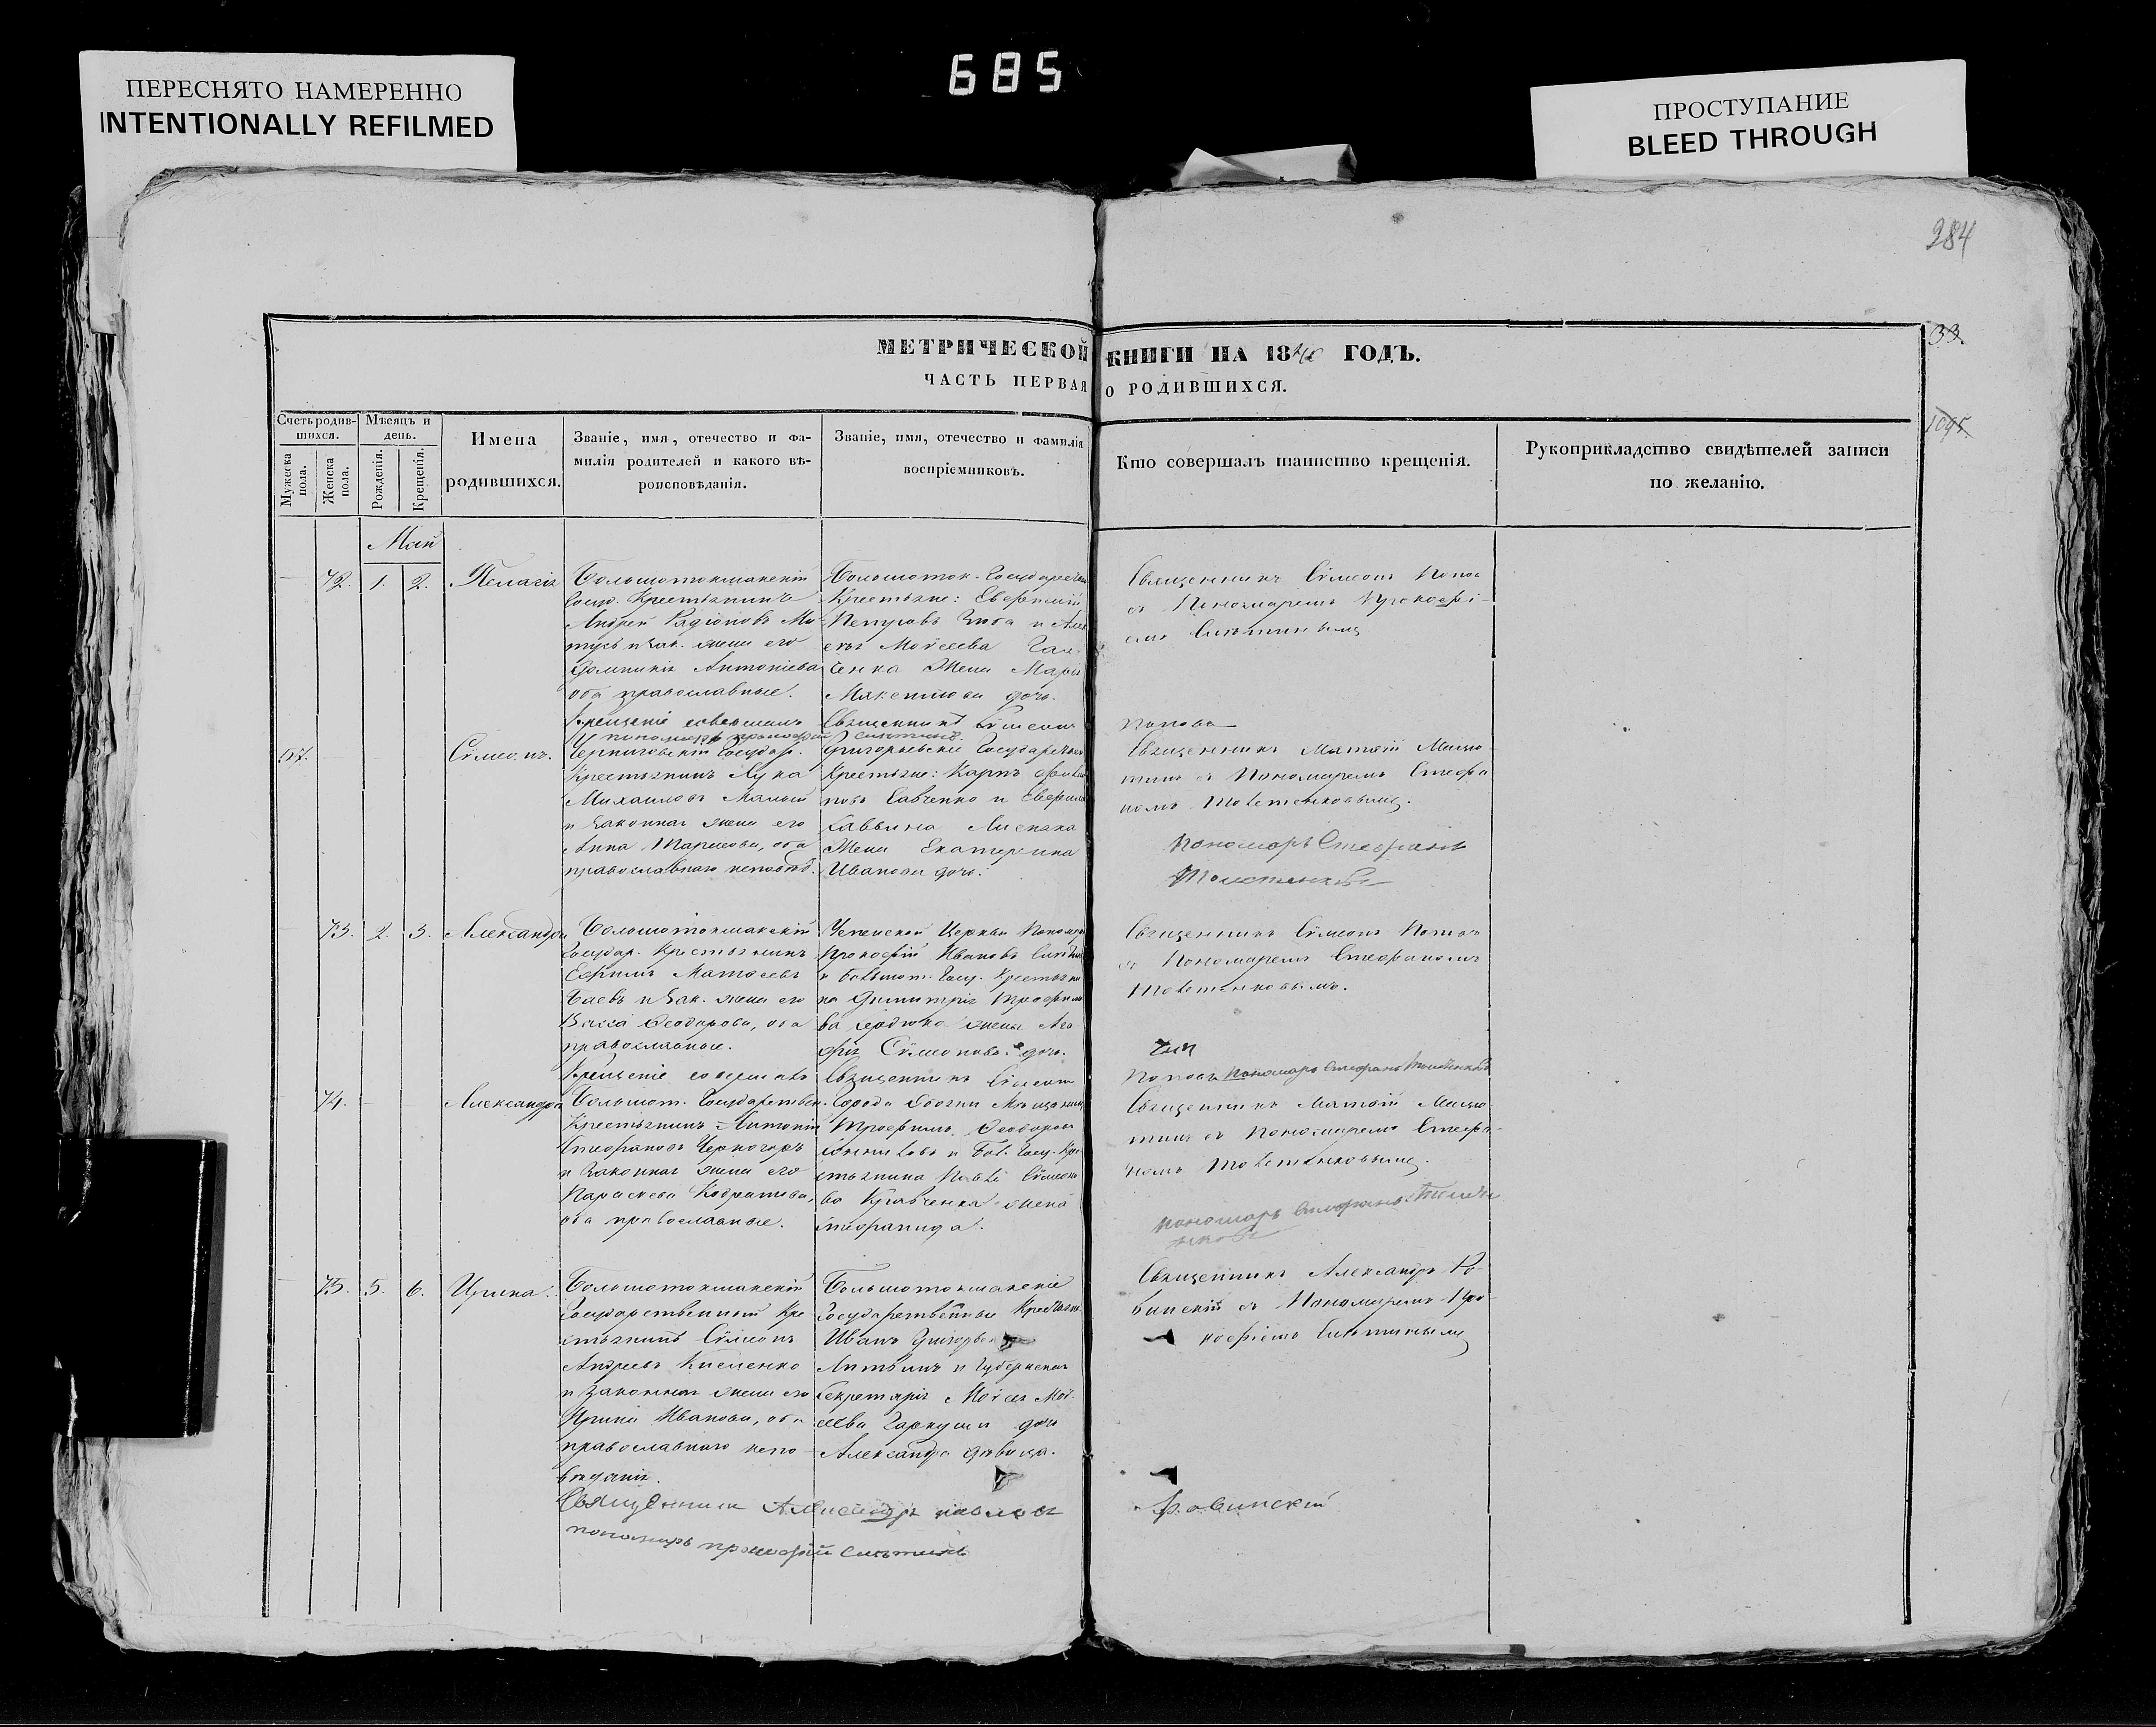 685
ПЕРЕСНЯТО НАМЕРЕННО
INTENTIONALLY REFILMED
ПРОСТУПАНИЕ
BLEED THROUGH
284
33.
1095
МЕТРИЧЕСКОЙ КНИГИ НА 1840 ГОДЪ.
ЧАСТЬ ПЕРВАЯ О РОДИВШИХСЯ.
Счетъ родив-
шихся.
Мужеска
пола.
Женска
пола.
Мѣсяцъ и
день.
Рожденія.
Крещенія.
Имена
родившихся.
Званіе, имя, отечество и фа-
милія родителей и какого вѣ-
роисповѣданія.
Званіе, имя, отечество и фамилія
воспріемниковъ.
Кто совершалъ таинство крещенія.
Рукоприкладство свидѣтелей записи
по желанію.
Май
72. 1. 2. Пелагія
Большотокмакскій
Госуд. Крестьянинъ
Андрей Радіоновъ
и зак. жена его
Домникія Антоніева
оба православные.
Большоток. Государствен
Крестьяне: Евфимій
Петровъ Зюба и Але
Моѵсеева
ченка Жена Марія
дочь.
Священникъ Сѵмеонъ Попов
съ Пономаремъ Прокофі-
емъ
Крещеніе совершалъ Священникъ Сѵмеонъ Поповъ
57. Сѵмеонъ.
Черниговскій Государ.
Крестьянинъ Лука
Михаиловъ Малый
и Законная жена его
Анна Тарасова, оба
православнаго исповѣд.
Григорьевскіе Государствен
Крестьяне: Карпъ
новъ Савченко и
Саввина Лисняка
Жена Екатерина
Иванова дочь.
Священникъ Матѳій
съ Пономаремъ Стефа
номъ Толстенковымъ.
Пономарь Стефанъ
Толстенковъ
73. 2. 3. Александра
Большотокмакскій
Государ. Крестьянинъ
Ефимъ Матвеевъ
Баевъ и Зак. жена его
Васса Ѳеодорова, оба
православные.
Успенской Церкви Пономарь
Прокофій Ивановъ
и Большот. Госуд. Крестьяни
на Димитрія Трофимо
ва Сердюка жена Ага
фія Сѵмеонова дочь.
Священникъ Сѵмеонъ Попов
съ Пономаремъ Стефаномъ
Толстенковымъ.
Крещеніе совершалъ Священникъ Сѵмеонъ
Поповъ Пономарь Стефанъ Толстенковъ
74. Александра
Большот. Государствен.
Крестьянинъ Антоній
Стефановъ Черногоръ
и Законная жена его
Параскева Кодратова,
оба православные.
Города Обояни Мѣщанинъ
Трофимъ Ѳеодоровъ
и Бол. Госуд. Кре
стьянина Павла Сѵмеоно
ва Кравченка жена
Стефанида.
Священникъ Матѳій
съ Пономаремъ Стефа-
номъ Толстенковымъ.
Пономарь Стефанъ Толсте
нковъ
75. 5. 6. Ирина.
Большотокмакскій
Государственный Кре
стьянинъ Сѵмеонъ
Андреевъ Кисленко
и Законная жена его
Ирина Иванова, оба
православнаго испо-
вѣданія.
Большотокмакскіе
Государственный Крестьян.
Иванъ Григорьев
Литвинъ и Губернскаго
Секретаря Моѵсея Моѵ-
сеева Гаркуши дочь
Александра дѣвица.
Священникъ Александръ Ро-
винскій съ Пономаремъ Про-
кофіемъ
Священникъ Александръ Павловъ Ровинскій
пономарь прокофій